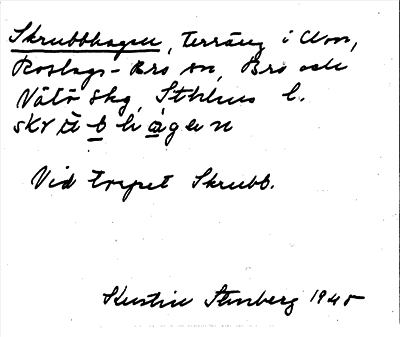 Skrubbhagen, Terräng i Uvn,
Roslags-Bro sn, Bro och
Vätö skg, Sthlms l.
skräbhagen
Vid torpet Skrubb.
Kerstin Stenberg 1945